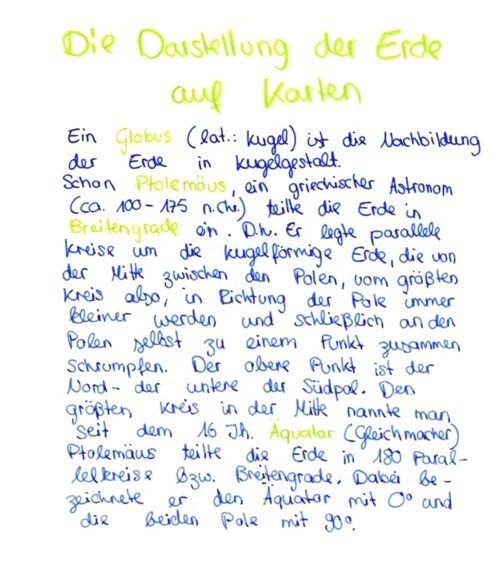 Die Darstellung der Erde
auf Karten
Ein Globus (lat.: Kugel) ist die Nachbildung
der Erde in Kugelgestalt.
Schon Ptolemäus, ein griechischer Astronom
(ca. 100-175 n.Chr.) teilte die Erde in
Breitengrade ein. D.h. Er legte parallele
Kreise um die kugelförmige Erde, die von
der Mitte zwischen den Polen, vom größten
Kreis also, in Richtung der Pole immer
kleiner werden und schließlich an den
Polen selbst zu einem Punkt zusammen
schrumpfen. Der obere Punkt ist der
Nord- der untere der Südpol. Den
größten Kreis in der Mitte nannte man
seit dem 16 Jh. Äquator (Gleichmacher)
Ptolemäus teilte die Erde in 180 Paral-
lelkreise bzw. Breitengrade. Dabei be-
zeichnete er den Äquator mit 0° und
die beiden Pole mit 90°.